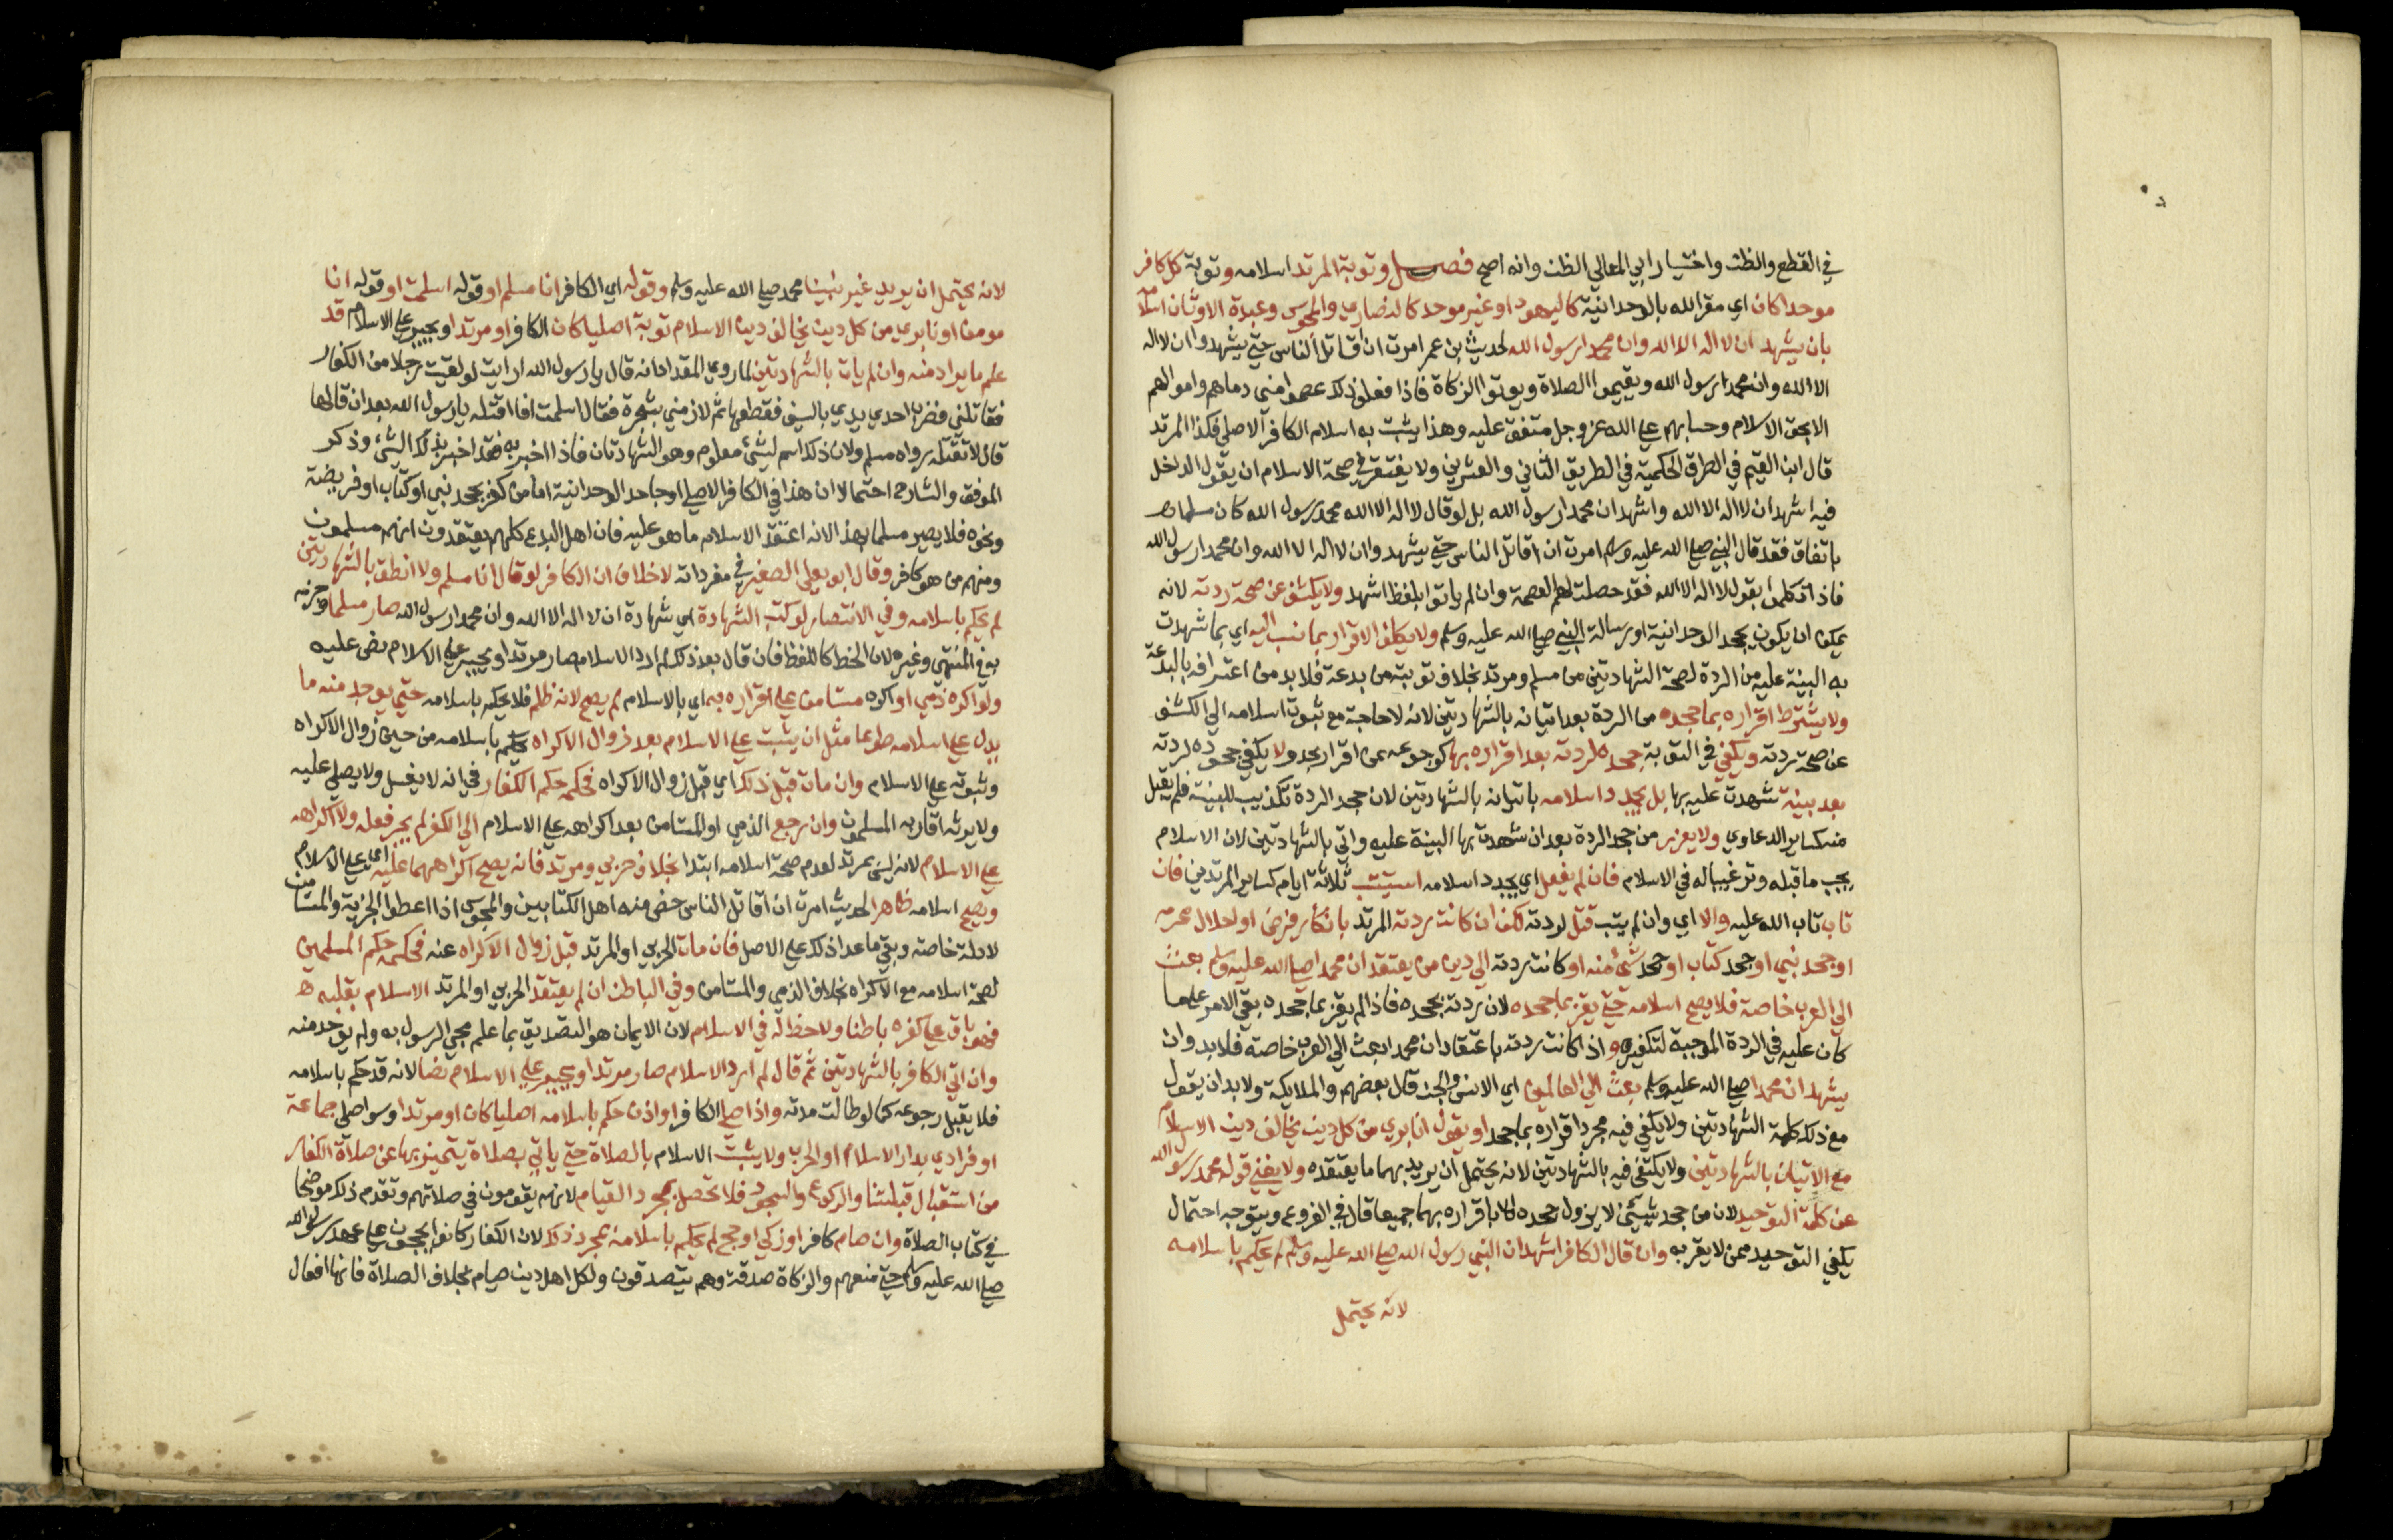 في القطع والظن واختيار ابي المعالي الظن وانه اصح فصل وتوبة المرتد اسلامه وتوبة كل كافر
موحدا كان اي مقرا لله بالوحدانية كاليهود او غير موحد كالنصارى والمجوس وعبدة الاوثان اسلامه
بان يشهد ان لا اله الا الله وان محمدا رسول الله لحديث بن عمر امرت ان اقاتل الناس حتي يشهدوا ان لا اله
الا الله وان محمدا رسول الله ويقيموا الصلاة ويوتوا الزكاة فاذا فعلوا ذلك عصموا مني دماهم واموالهم
الا بحق الاسلام وحسابهم علي الله عز وجل متفق عليه وهذا يثبت به اسلام الكافر الاصلي فكذا المرتد
قال ابن القيم في الطرق الحكمية في الطريق الثاني والعشرين ولا يفتقر في صحة الاسلام ان يقول الداخل
فيه اشهد ان لا اله الا الله واشهد ان محمدا رسول الله بل لو قال لا اله الا الله محمد رسول الله كان مسلما
باتفاق فقد قال النبي صلي الله عليه وسلم امرت ان اقاتل الناس حتي يشهدوا ان لا اله الا الله وان محمدا رسول الله
فاذا تكلموا بقول لا اله الا الله فقد حصلت لهم العصمة وان لم ياتوا بلفظ اشهد ولا يكشف عن صحة ردته لانه
يمكن ان يكون بجحد الوحدانية او رسالة النبي صلي الله عليه وسلم ولا يكلف الاقرار بما نسب اليه اي بما شهدت
به البينة عليه من الردة لصحة الشهادتين من مسلم ومرتد بخلاف توبته من بدعة فلا بد من اعترافه بالبدعة
ولا يشترط اقراره بما جحده من الردة بعد اتيانه بالشهادتين لانه لا حاجة مع ثبوت اسلامه الي الكشف
عن صحة ردته ويكفي في التوبة جحده لردته بعد اقراره بها كرجوعه عن اقرار بحد ولا يكفي جحوده لردته
بعد بينة شهدت عليه بها بل يجدد اسلامه باتيانه بالشهادتين لان جحد الردة تكذيب للبينة فلم يقبل
منه كساير الدعاوي ولا يعزر من جحد الردة بعد ان شهدت بها البينة عليه واتي بالشهادتين لان الاسلام
يجب ما قبله وترغيبا له في الاسلام فان لم يفعل اي يجدد اسلامه استتيب ثلاثة ايام كساير المرتدين فان
تاب تاب الله عليه والا اي وان لم يتب قتل لردته لكن ان كانت ردة المرتد بانكار فرض او احلال محرم
او جحد نبي او جحد كتاب او جحد شئ منه او كانت ردته الي دين من يعتقد ان محمدا صلي الله عليه وسلم بعث
الي العرب خاصة فلا يصح اسلامه حتي يقر بما جحده لان ردته بجحده فاذا لم يقر بما جحده بقي الامر علي ما
كان عليه في الردة الموجبة لتكفيره واذا كانت ردته باعتقاد ان محمدا بعث الي العرب خاصة فلا بد وان
يشهد ان محمدا صلي الله عليه وسلم بعث الي العالمين اي الانس والجن قال بعضهم والملايكة ولا بد ان يقول
مع ذلك كلمة الشهادتين ولا يكفي فيه مجرد اقراره بما جحد او يقول انا بري من كل دين يخالف دين الاسلام
مع الاتيان بالشهادتين ولا يكتفي فيه بالشهادتين لانه يحتمل ان يريد بهما ما يعتقده ولا يغني قوله محمد رسول الله
عن كلمة التوحيد لان من جحد شيئين لا يزول جحده الا باقراره بهما جميعا قال في الفروع ويتوجه احتمال
يكفي التوحيد ممن لا يقر به وان قال الكافر اشهد ان النبي رسول الله صلي الله عليه وسلم لم يحكم باسلامه
لانه يحتمل
لانه يحتمل ان يريد غير نبينا محمد صلي الله عليه وسلم وقوله اي الكافر انا مسلم او قوله اسلمت او قوله انا
مومن او انا بري من كل دين يخالف دين الاسلام توبة اصليا كان الكافر او مرتدا ويجبر علي الاسلام قد
علم ما يراد منه وان لم يات بالشهادتين لما روي المقداد انه قال يا رسول الله ارايت لو لقيت رجلا من الكفار
فقاتلني فضرب احدي يدي بالسيف فقطعها ثم لاذ مني بشجرة فقال اسلمت افاقتله يا رسول الله بعد ان قالها
قال لا تقتله رواه مسلم ولان ذلك اسم لشئ معلوم وهو الشهادتان فاذا اخبر به فقد اخبر بذلك الشئ وذكر
الموفق والشارح احتمالا ان هذا في الكافر الاصلي او جاحد الوحدانية اما من كفر بجحد نبي او كتاب او فريضة
ونحوه فلا يصير مسلما بهذا لانه اعتقد الاسلام ما هو عليه فان اهل البدع كلهم يعتقدون انهم مسلمون
ومنهم من هو كافر وقال ابو يعلي الصغير في مفرداته لا خلاف ان الكافر لو قال انا مسلم ولا انطق بالشهادتين
لم يحكم باسلامه وفي الانتصار لو كتب الشهادة اي شهادة ان لا اله الا الله وان محمدا رسول الله صار مسلما وجزم
به في المنتهي وغيره لان الخط كاللفظ فان قال بعد ذلك لم ارد الاسلام صار مرتدا ويجبر علي الاسلام نص عليه
ولو اكره ذمي او اكره مستامن علي اقراره به اي بالاسلام لم يصح لانه ظلم فلا يحكم باسلامه حتي يوجد منه ما
يدل علي اسلامه طوعا مثل ان يثبت علي الاسلام بعد زوال الاكراه حكم باسلامه من حين زوال الاكراه
وثبوته علي الاسلام وان مات قبل ذلك اي قبل زوال الاكراه فحكمه حكم الكفار في انه لا يغسل ولا يصلي عليه
ولا يرثه اقاربه المسلمون وان رجع الذمي او المستامن بعد اكراهه علي الاسلام الي الكفر لم يجز قتله ولا اكراهه
علي الاسلام لانه ليس بمرتد لعدم صحة اسلامه ابتدا بخلاف حربي ومرتد فانه يصح اكراههما عليه اي علي الاسلام
ويصح اسلامه ظاهرا لحديث امرت ان اقاتل الناس خص منه اهل الكتابين والمجوس اذا اعطوا الجزية والمستامن
لادلة خاصة وبقي ما عدا ذلك علي الاصل فان مات الحربي او المرتد قبل زوال الاكراه عنه فحكمه حكم المسلمين
لصحة اسلامه مع الاكراه بخلاف الذمي والمستامن وفي الباطن ان لم يعتقد الحربي او المرتد الاسلام بقلبه
فهو باق علي كفره باطنا ولا حظ له في الاسلام لان الايمان هو التصديق بما علم مجي الرسول به ولم يوجد منه
وان اتي الكافر بالشهادتين ثم قال لم ارد الاسلام صار مرتدا ويجبر علي الاسلام نصا لانه قد حكم باسلامه
فلا يقبل رجوعه كما لو طالت مدته واذا صلي الكافر او اذن حكم باسلامه اصليا كان او مرتدا وسوا صلي جماعة
او فرادي بدار الاسلام او الحرب ولا يثبت الاسلام بالصلاة حتي ياتي بصلاة يتميز بها عن صلاة الكفار
من استقبال قبلتنا والركوع والسجود فلا تحصل بمجرد القيام لانهم يقومون في صلاتهم وتقدم ذلك موضحا
في كتاب الصلاة وان صام كافر او زكي او حج لم يحكم باسلامه بمجرد ذلك لان الكفار كانوا يحجون علي عهد رسول الله
صلي الله عليه وسلم حتي منعهم والزكاة صدقة وهم يتصدقون ولكل اهل دين صيام بخلاف الصلاة فانها افعال